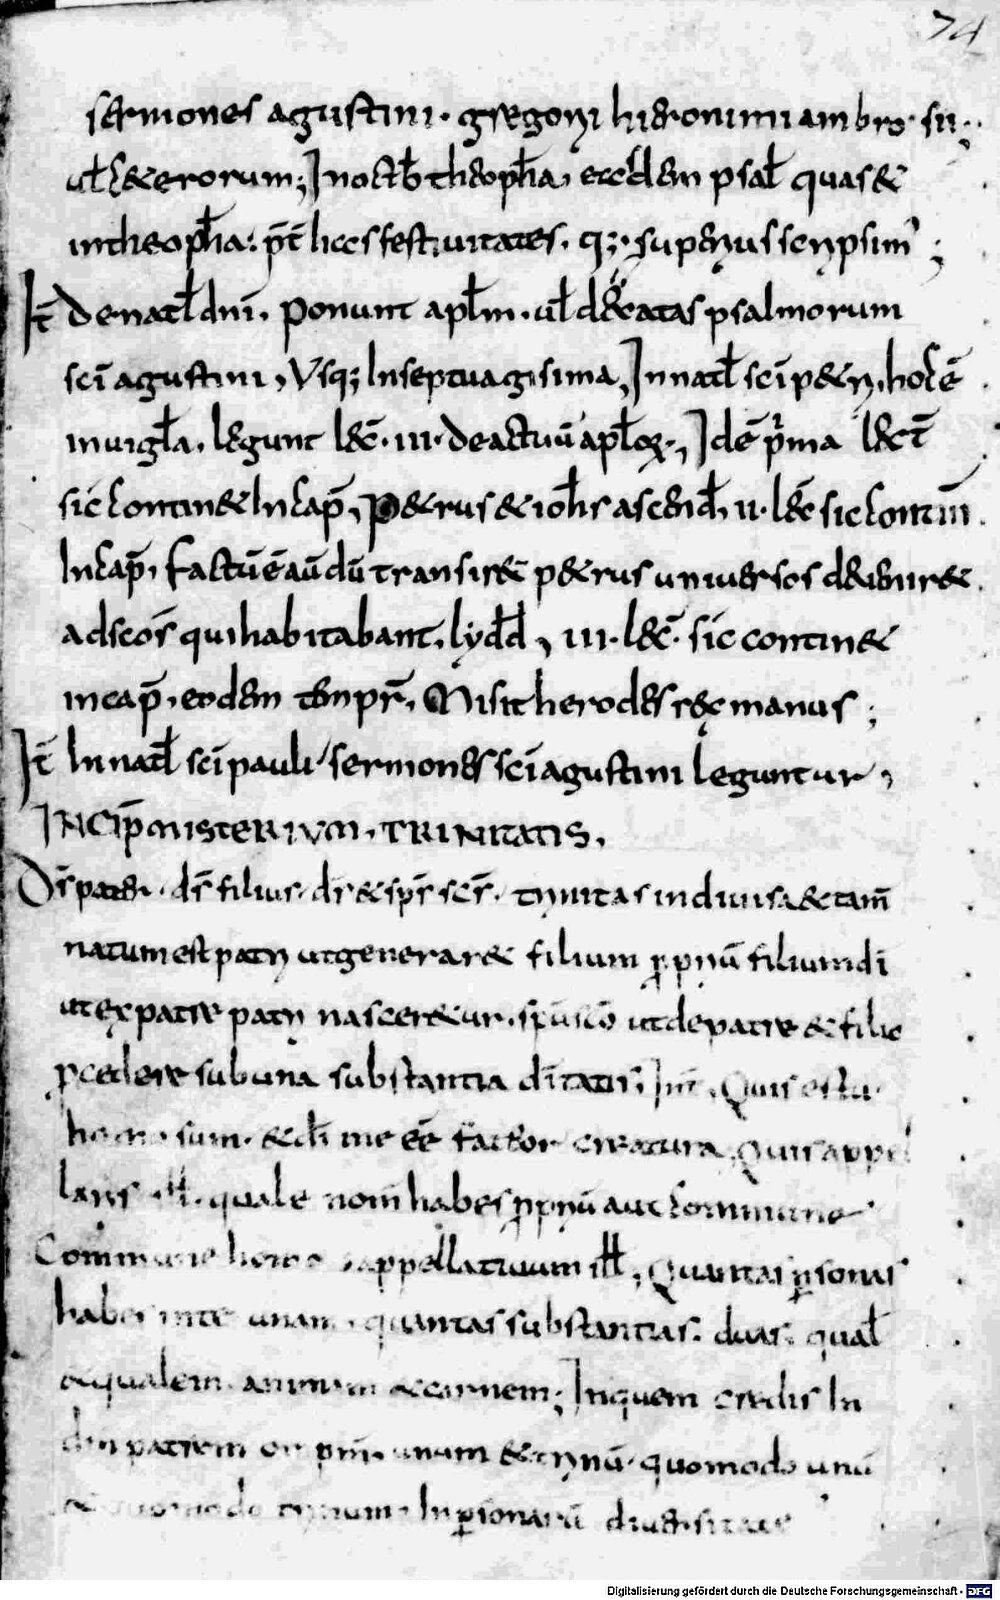 74
sermones agustini · gregorii hieronimi ambro· su·
ul̄ cęterorum; In oct̄b theoph̄a, eodem psal̄ quas &
in theoph̄a· p̄t hęc festiuitates · q; · superius scripsim';
It̄ De natl̄ dnī, ponunt apl̄m · ul̄ decatas psalmorum
scī agustini, Usq; In septuagisima, In natl̄ scī petri, hoc ē
in uigl̄a, legunt lec̄ · III · De actuū apl̄oꝝ, Idē prima lect̄
sic continet In cap̄, Petrus & ioh̄s ascend̄, II · lec̄ sic contin̄
In cap̄, factū ē aū dū transiret petrus uniuersos deuenir&
ad scōs qui habitabant, lydd̄, III · lec̄ · sic continet
in cap̄, eodem tempr̄, Misit herodes rex manus;
It̄ In natl̄ scī pauli sermones scī agustini leguntur,
INCIP̄ MISTERIUM · TRINITATIS,
Ds̄ pater · ds̄ filius · ds̄ & sps̄ scs̄ · trinitas indiuisa & tam̄
natum est patri ut generar& filium ꝓpriū filium dī
ut ex patre patri nascer&ur · spū scō ut de patre & filio
ꝓcedere sub una substantia dītatis, Int̄, Quis es tu·
homo sum · & dī me eē fateor creatura, Quis appel
laris · ill̄ · quale nom̄ habes ꝓpriū aut commune
Commune homo appellatiuum ill̄, Quantas ꝑsonas
habes in te unam, quantas substantias · duas · qual̄
&qualem · animam & carnem; In quem credis In
dm̄ patrem om̄ptm̄ · unum & trinū · quomodo unū
& quomodo trinum · In ꝑsonarū diuersitate
Digitalisierung gefördert durch die Deutsche Forschungsgemeinschaft - DFG